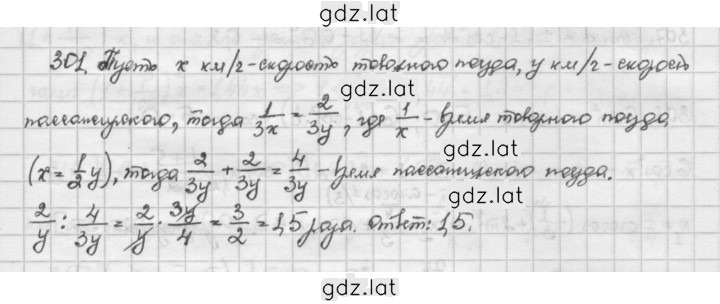 gdz.lat
301. Пусть x км/г-скорость товарного поезда, y км/г-скорость
пассажирского, тогда 1/3x = 2/3y, где 1/x - время товарного поезда
gdz.lat
(x = 1/2 y), тогда 2/3y + 2/3y = 4/3y - время пассажирского поезда.
2/y : 4/3y = 2/y · 3y/4 = 3/2 = 1,5 раза. ответ: 1,5.
gdz.lat